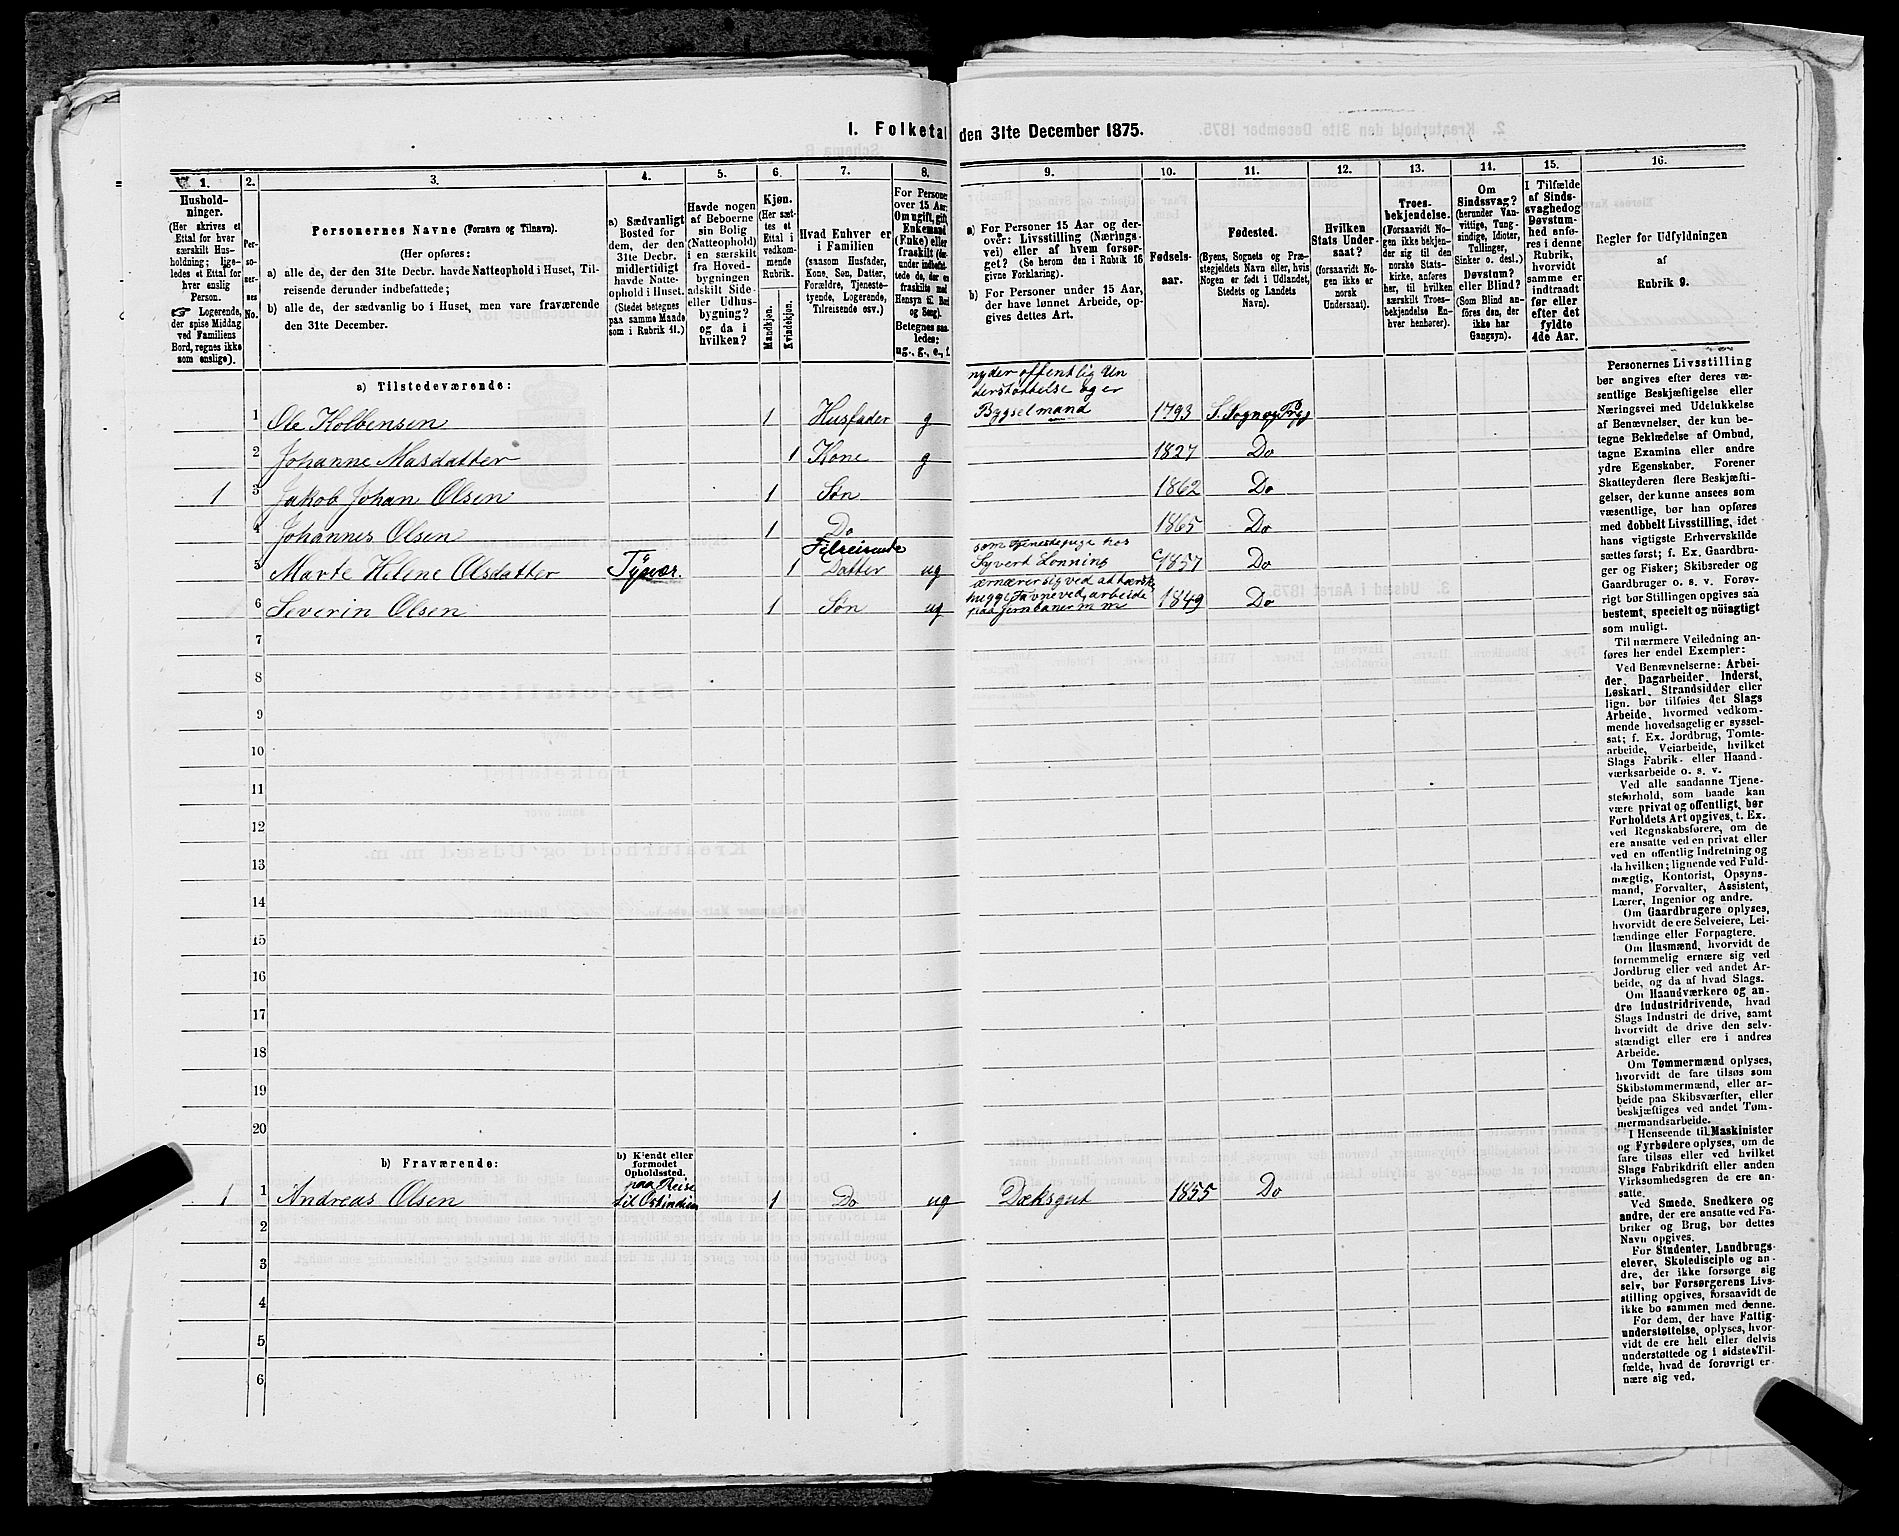 1. Folketal den 31te December 1875.
1. 2. 3. 4. 5. 6. 7. 8. 9. 10. 11. 12. 13. 14. 15. 16.
Hushold-
ninger.
(Her skrives et
Ettal for hver
særskilt Hus-
holdning; lige-
ledes et Ettal for
hver enslig
Person.
☞ Logerende,
der spise Middag
ved Familiens
Bord, regnes ikke
som enslige).
Per-
so-
ner-
nes
No.
Personernes Navne (Fornavn og Tilnavn).
(Her opføres:
a) alle de, der den 31te Decbr. havde Natteophold i Huset, Til-
reisende derunder indbefattede;
b) alle de, der sædvanlig bo i Huset, men vare fraværende
den 31te December.
a) Sædvanligt
Bosted for
dem, der den
31te Decbr.
midlertidigt
havde Natte-
ophold i Huset.
(Stedet betegnes
paa samme Maade
som i Rubrik 11.)
Havde nogen
af Beboerne
sin Bolig
(Natteophold)
i en særskilt
fra Hoved-
bygningen
adskilt Side-
eller Udhus-
bygning?
og da i
hvilken?
Kjøn.
(Her sæt-
tes et
Ettal i
vedkom-
mende
Rubrik.
Mandkjøn.
Kvindekjøn.
Hvad Enhver er
i Familien
(saasom Husfader,
Kone, Søn, Datter,
Forældre, Tjeneste-
tyende, Logerende,
Tilreisende osv.)
For Personer
over 15 Aar:
Om ugift, gift,
Enkemand
(Enke) eller
fraskilt (der-
under indbefat-
tede de, der ere
fraskilte med
Hensyn til Bord
og Seng).
Betegnes saa-
ledes:
ug., g., e., f.
a) For Personer 15 Aar og der-
over: Livsstilling (Nærings-
vei) eller af hvem forsør-
get? (Se herom den i Rubrik 16
givne Forklaring).
b) For Personer under 15 Aar,
der have lønnet Arbeide, op-
gives dettes Art.
Fødsels-
aar.
Fødested.
(Byens, Sognets og Præ-
stegjeldets Navn eller, hvis
Nogen er født i Udlandet,
Stedets og Landets
Navn).
Hvilken
Stats Under-
saat?
(forsaavidt No-
gen ikke er
norsk
Undersaat).
Troes-
bekjendelse.
(Forsaavidt No-
gen ikke bekjen-
der sig til den
norske Stats-
kirke, anføres
her, til hvilken
særskilt Troes-
bekjendelse En-
hver henhører).
Om
Sindssvag?
(herunder Van-
vittige, Tung-
sindige, Idioter,
Tullinger,
Sinker o. desl.)
Døvstum?
eller Blind?
(Som Blind an-
føres den, der
ikke har
Gangsyn).
I Tilfælde
af Sinds-
svaghed og
Døvstum-
hed anfø-
res i denne
Rubrik,
hvorvidt
samme er
indtraadt
før eller
efter det
fyldte
4de Aar.
Regler for Udfyldningen
af
Rubrik 9.
a) Tilstedeværende:
nyder offentlig Un
derstøttelse og er
1 Ole Kolbensen 1 Husfader g Bygselmand 1793 S. Sogn og Prgj
2 Johanne Masdatter 1 Kone g 1827 Do
1 3 Jakob Johan Olsen 1 Søn 1862 Do
4 Johannes Olsen 1 Do 1865 Do
Tilreisende som tjenestepige hos
5 Marte Helene Olsdatter Tysvær. 1 Datter ug Syvert Lonning 1857 Do
6 Severin Olsen 1 Søn ug 1849 Do
paa Jernbaner m m
7
8
9
10
11
12
13
14
15
16
17
18
19
20
b) Fraværende:
b) Kjendt eller
formodet
Opholdssted.
paa Reise
1 1 Andreas Olsen til Ostindien 1 Do ug Dæksgut 1855 Do
2
3
4
5
6
Personernes Livsstilling
bør angives efter deres væ-
sentlige Beskjæftigelse eller
Næringsvei med Udelukkelse
af Benævnelser, der kun be-
tegne Beklædelse af Ombud,
tagne Examina eller andre
ydre Egenskaber. Forener
Skatteyderen flere Beskjæfti-
gelser, der kunne ansees som
væsentlige, bør han opføres
med dobbelt Livsstilling, idet
hans vigtigste Erhvervskilde
sættes først; f. Ex. Gaardbru-
ger og Fisker; Skibsreder og
Gaardbruger o. s. v. Forøv-
rigt bør Stillingen opgives saa
bestemt, specielt og nöiagtigt
som muligt.
Til nærmere Veiledning an-
føres her endel Exempler:
Ved Benævnelserne: Arbei-
der, Dagarbeider, Inderst,
Løskarl, Strandsidder eller
lign. bør tilføies det Slags
Arbeide, hvormed vedkom-
mende hovedsagelig er syssel-
sat; f. Ex. Jordbrug, Tomte-
arbeide, Veiarbeide, hvilket
Slags Fabrik- eller Haand-
værksarbeide o. s. v.
Ved alle saadanne Tjene-
steforhold, som baade kan
være privat og offentligt, bør
Forholdets Art opgives, t. Ex.
ved Regnskabsførere, om de
ere ansatte ved en privat eller
ved en offentlig Indretning og
da hvilken; lignende ved Fuld-
mægtig, Kontorist, Opsyns-
mand, Forvalter, Assistent,
Lærer, Ingeniør og andre.
Om Gaardbrugere oplyses,
hvorvidt de ere Selveiere, Lei-
lændinge eller Forpagtere.
Om Husmænd, hvorvidt de
fornemmelig ernære sig ved
Jordbrug eller ved andet Ar-
beide, og da af hvad Slags.
Om Haandværkere og an-
dre Industridrivende, hvad
Slags Industri de drive, samt
hvorvidt de drive den selv-
stændigt eller ere i andres
Arbeide.
Om Tømmermænd oplyses,
hvorvidt de fare tilsøs som
Skibstømmermænd, eller ar-
beide paa Skibsværfter, eller
beskjæftiges ved andet Tøm-
mermandsarbeide.
I Henseende til Maskinister
og Fyrbødere oplyses, om de
fare tilsøs eller ved hvilket
Slags Fabrikdrift eller anden
Virksomhedsgren de ere an-
satte.
Ved Smede, Snedkere og
andre, der ere ansatte ved Fa-
briker og Brug, bør dettes
Navn opgives.
For Studenter, Landbrugs-
elever, Skoledisciple og an-
dre, der ikke forsørge sig
selv, bør Forsørgerens Livs-
stilling opgives, forsaavidt de
ikke bo sammen med denne.
For dem, der have Fattig-
understøttelse, oplyses, hvor-
vidt de ere helt eller delvis
understøttede og i sidste Til-
fælde, hvad de forøvrigt er-
nære sig ved.